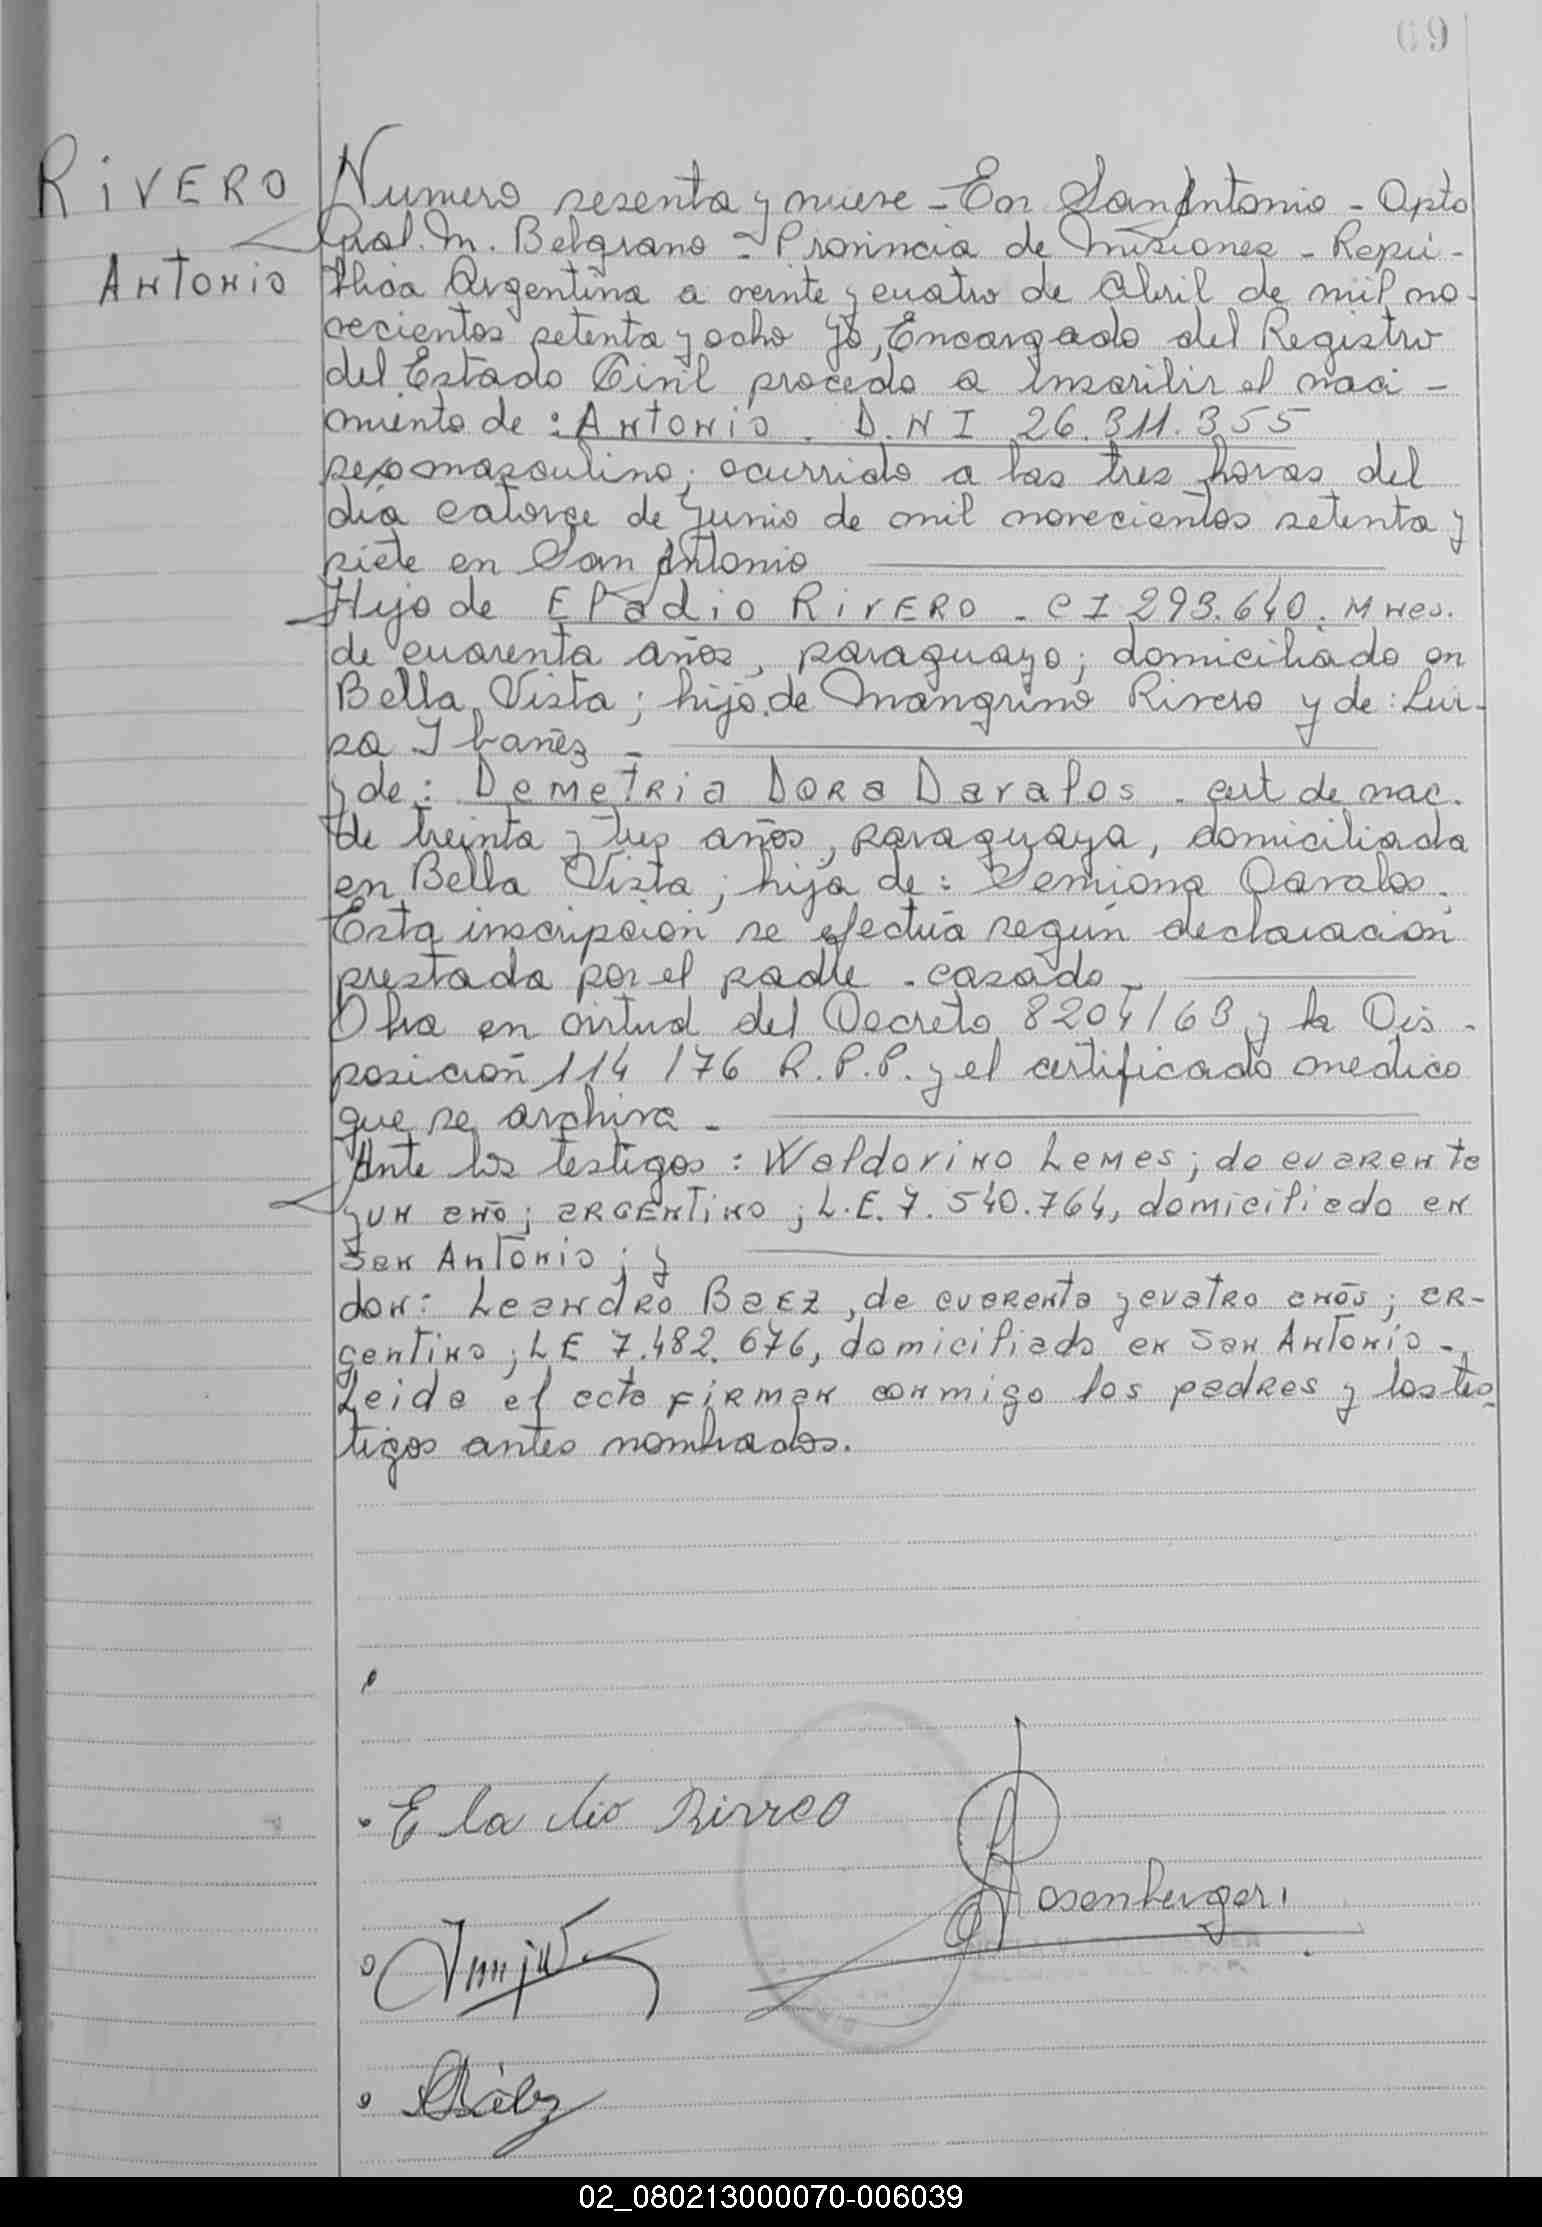 69
RiVERO
ANTONiO
Numero sesenta y nueve - En San Antonio - Dpto
Gral. M. Belgrano = Provincia de Misiones - Repú-
blica Argentina a veinte y cuatro de Abril de mil no-
vecientos setenta y ocho Yo, Encargado del Registro
del Estado Civil procedo a inscribir el naci-
miento de : ANTONiO . D.N I 26.311.355
sexo masculino; ocurrido a las tres horas del
día catorce de Junio de mil novecientos setenta y
siete en San Antonio
Hijo de Eladio RiVERO - C I 293.640. MNES.
de cuarenta años, paraguayo; domiciliado en
Bella Vista; hijo de Mangrino Rivero y de: Lui-
sa Ibañez -
y de: DemeTRia DORa Davalos . cert de nac.
de treinta y tres años, paraguaya, domiciliada
en Bella Vista; hija de: Semiona Davalos.
Esta inscripción se efectúa según declaración
prestada por el padre - casado -
Obra en virtud del Decreto 8204/63 y la Dis-
posición 114/76 R.P.P. y el certificado medico
que se archiva -
Ante los testigos: Waldovino Lemes; de cuarenta
y un año; argentino; L.E. 7.540.764, domiciliado en
San Antonio; y
don: Leandro Baez, de cuarenta y cuatro años; ar-
gentino; LE 7.482.676, domiciliado en San Antonio -
Leida el acta firman conmigo los padres y los tes-
tigos antes nombrados.
Eladio Rivreo
Rosenberger
Báez
02_080213000070-006039